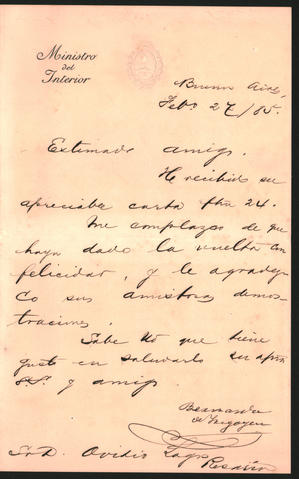 Ministro
del
Interior
Buenos Aires,
Feb. 27/85.
Estimado amigo.
He recibido su
apreciable carta fha 24.
Me complazco de que
haya dado la vuelta con
felicidad, y le agradez-
co sus amistosas demos-
traciones.
Sabe Vd que tiene
gusto en saludarlo su
SS. y amigo
Bernardo
de Irigoyen
Sr. D. Ovidio Lagos
Rosario